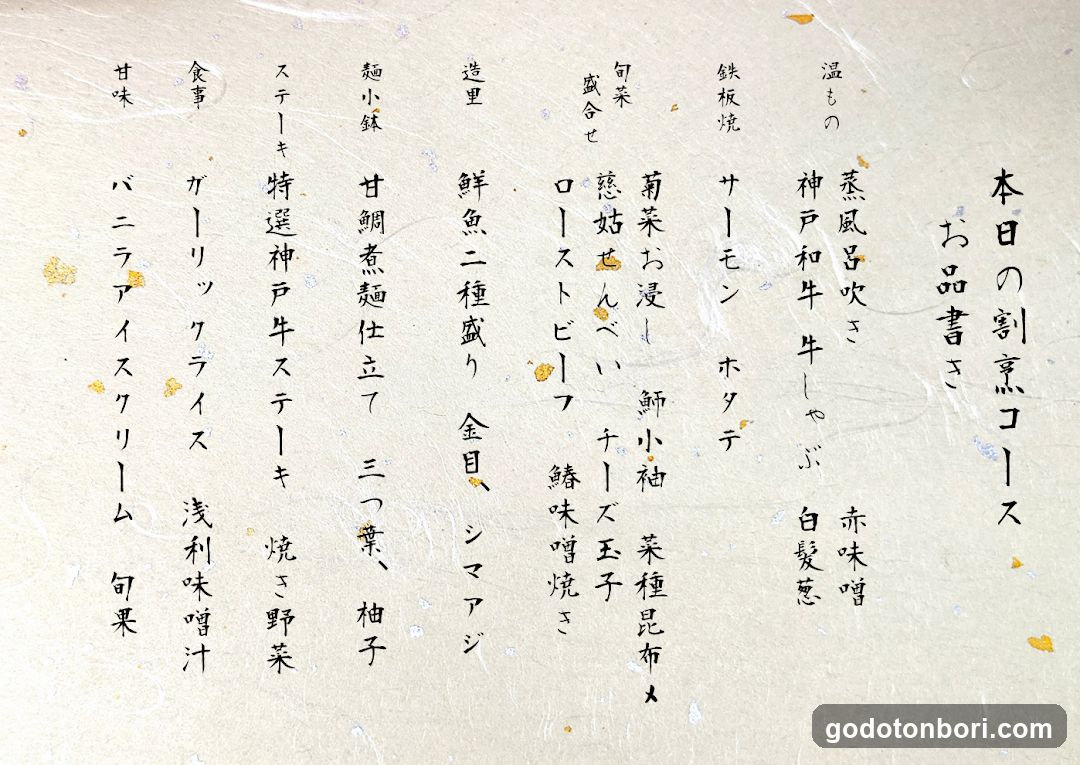 本日の割烹コース
お品書き
温もの
蒸風呂吹き 赤味噌
神戸和牛 牛しゃぶ 白髪葱
鉄板焼
サーモン ホタテ
旬菜
盛合せ
菊菜お浸し 鰤小袖 菜種昆布〆
慈姑せんべい チーズ玉子
ローストビーフ 鰆味噌焼き
造里
鮮魚二種盛り 金目、シマアジ
麺小鉢
甘鯛煮麺仕立て 三つ葉、柚子
ステーキ
特選神戸牛ステーキ 焼き野菜
食事
ガーリックライス 浅利味噌汁
甘味
バニラアイスクリーム 旬果
godotonbori.com